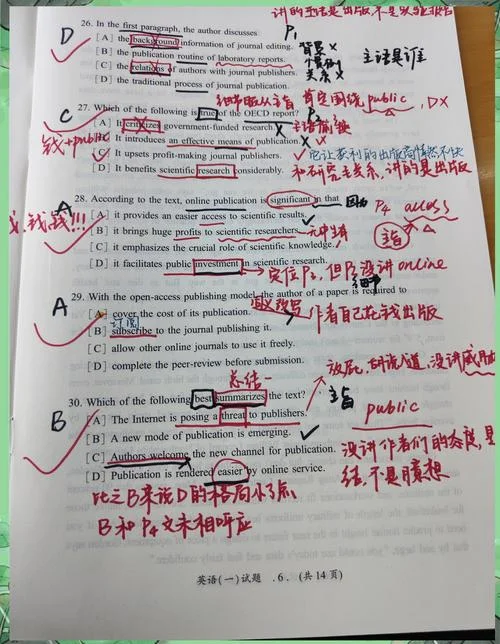 讲的主语是出版,不是
26. In the first paragraph, the author discusses
P1
D
[A] the background information of journal editing.
背景 X
[B] the publication routine of laboratory reports.
主语是谁
[C] the relations of authors with journal publishers.
关系 X
[D] the traditional process of journal publication.
肯定围绕 public
27. Which of the following is true of the OECD report?
P3
C
[A] It criticizes government-funded research.
X 主语偷换
钱+public
[B] It introduces an effective means of publication.
X
[C] It upsets profit-making journal publishers.
✓它让获利的出版商
[D] It benefits scientific research considerably.
和研究无关系,讲的是出版
28. According to the text, online publication is significant in that
因为 P4 access
A
钱!!!
[A] it provides an easier access to scientific results.
主旨
[B] it brings huge profits to scientific researchers.
无中生有
[C] it emphasizes the crucial role of scientific knowledge.
[D] it facilitates public investment in scientific research.
定位P3,但P3没讲online
29. With the open-access publishing model, the author of a paper is required to
A
[A] cover the cost of its publication.
作者自己花钱出版
订阅
[B] subscribe to the journal publishing it.
[C] allow other journals to use it freely.
[D] complete the peer-review before submission.
总结一
胡说八道,没讲威胁
30. Which of the following best summarizes the text?
主旨
B
[A] The Internet is posing a threat to publishers.
public
[B] A new mode of publication is emerging.
✓
[C] Authors welcome the new channel for publication.
没讲作者们的态度,是
[D] Publication is rendered easier by online service.
结,不是臆想
比之B来说D的格局小了点
B和P4文末相呼应
英语(一)试题 . 6 . (共14页)